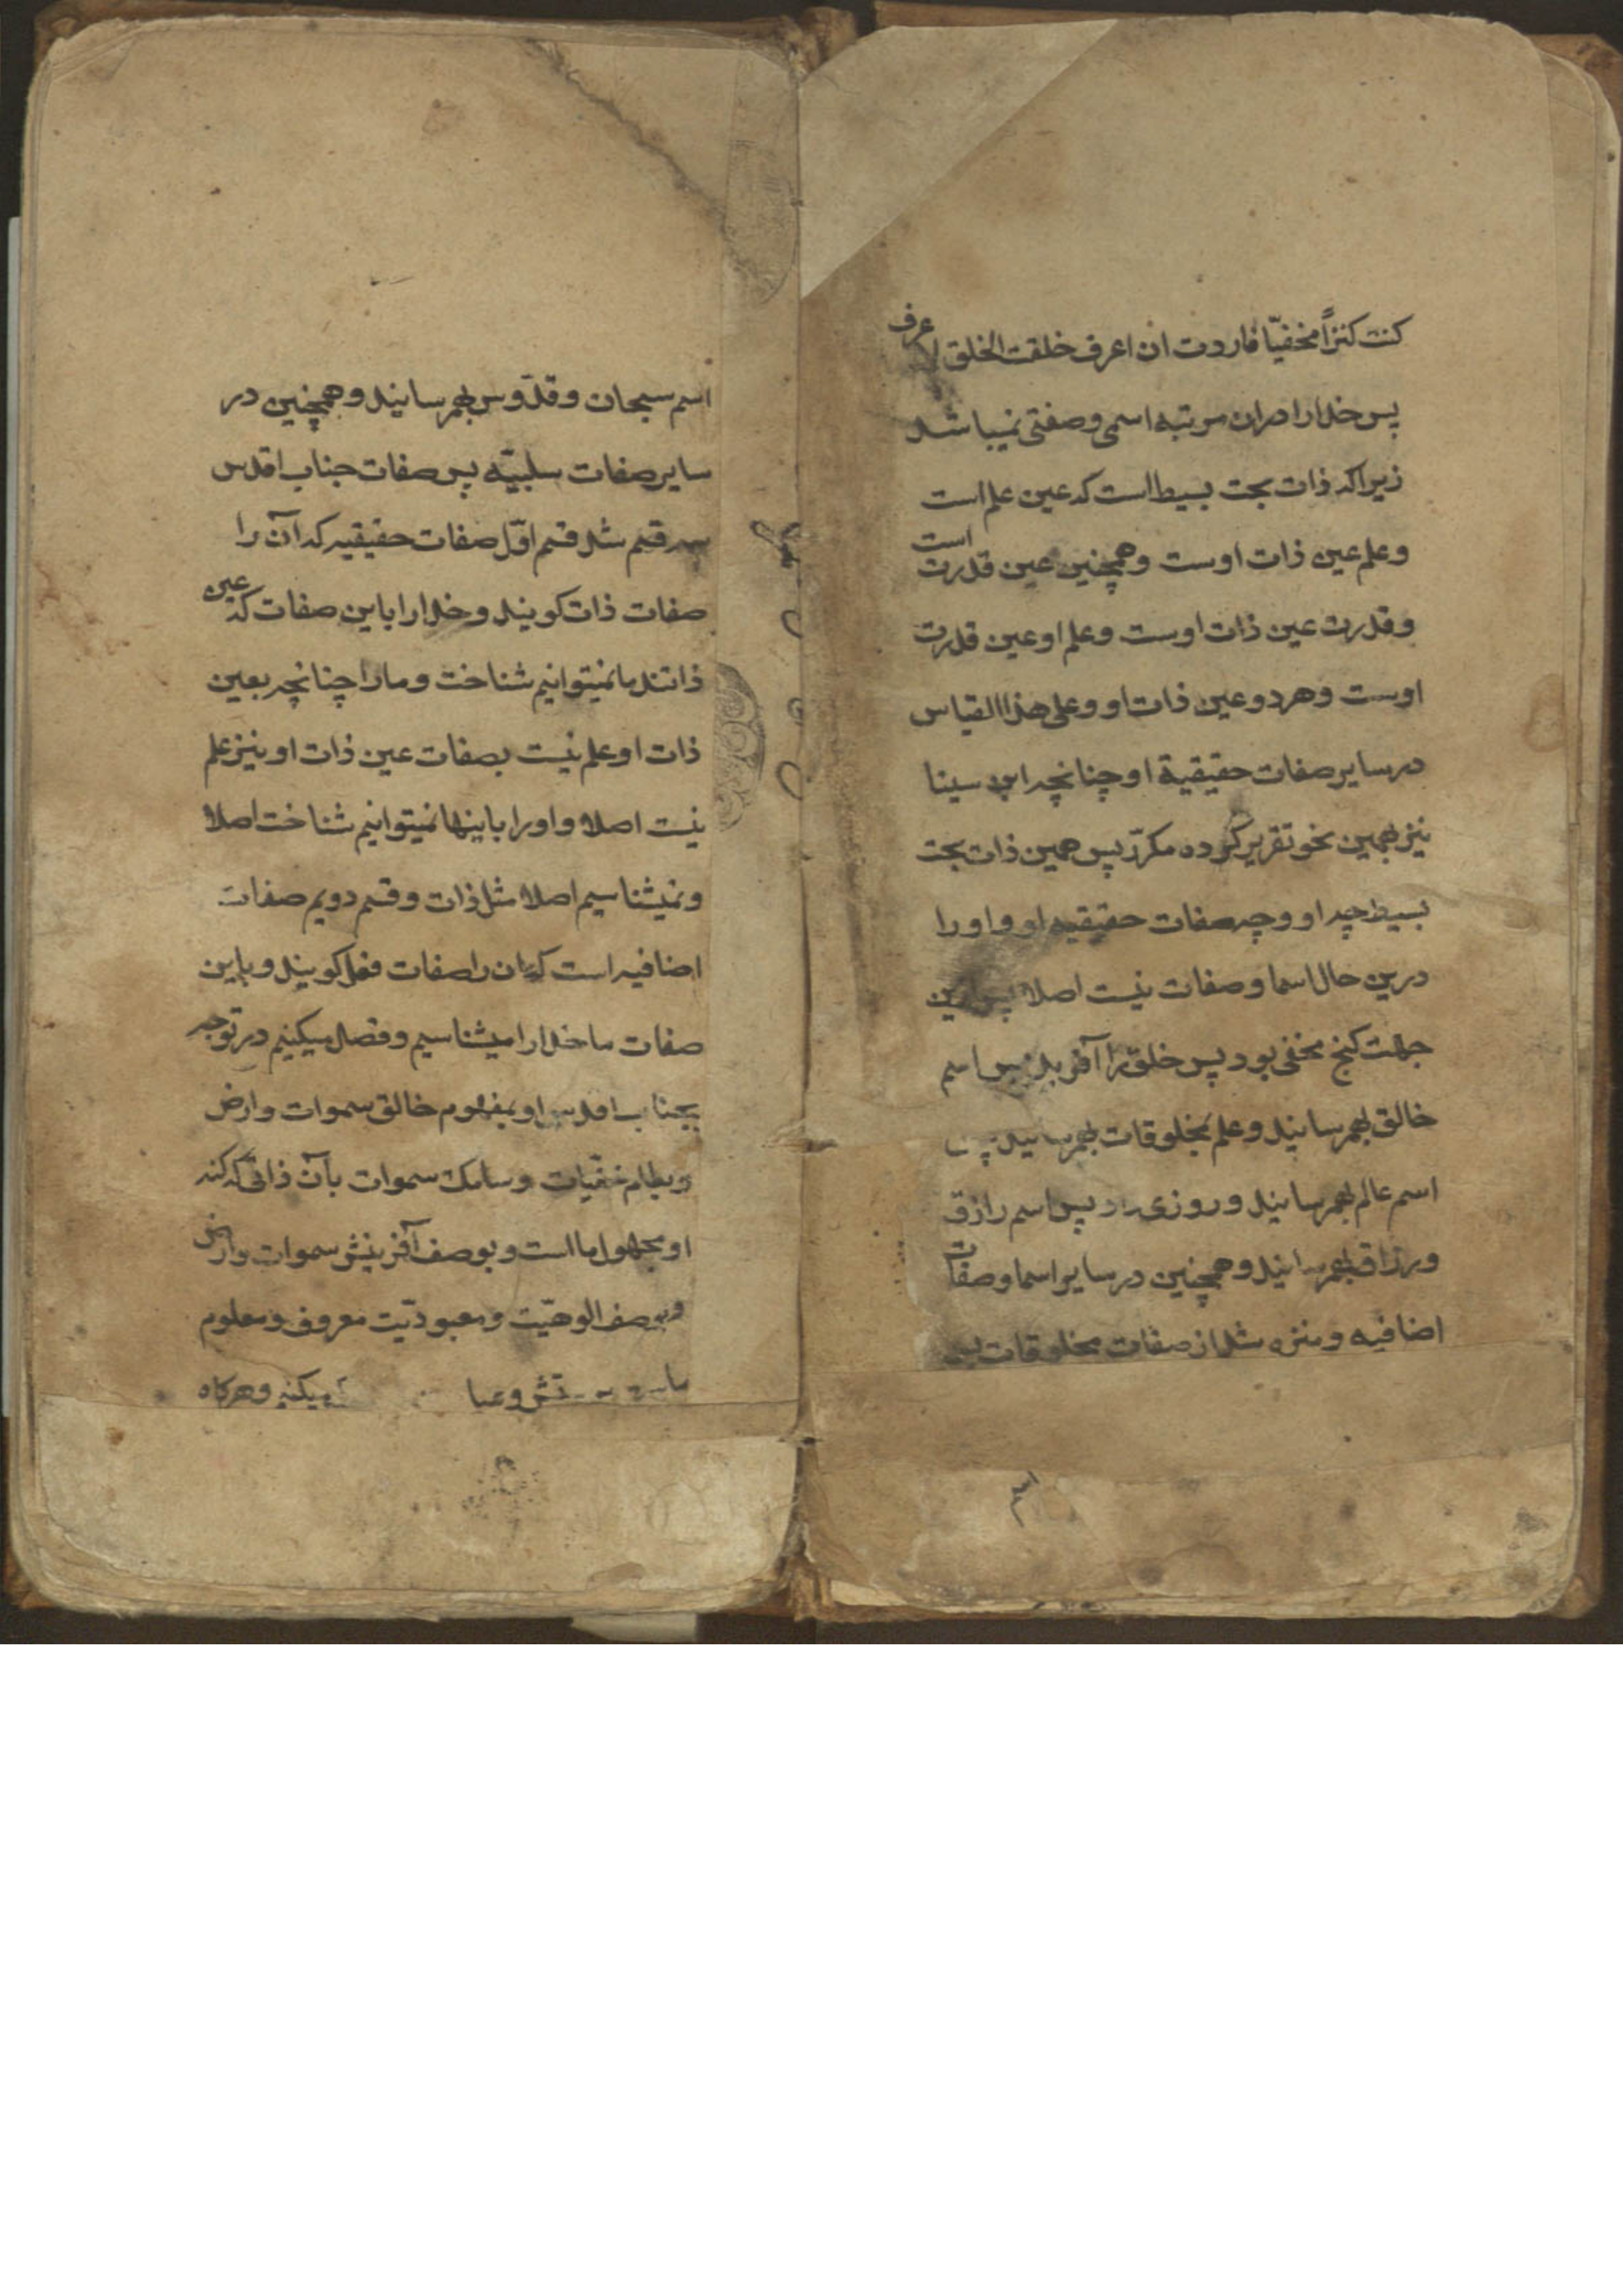 کنت کنزاً مخفیّا فاردت ان اعرف خلقت الخلق لاعرف
پس خدا را دران مرتبه اسمی و صفتی نمیباشد
زیرا که ذات بحت بسیط است که عین علم است
و علم عین ذات اوست و همچنین عین قدرت است
و قدرت عین ذات اوست و علم او عین قدرت
اوست و هر دو عین ذات او و علی هذا القیاس
در سایر صفات حقیقیة او چنانچه ابن سینا
نیز بهمین نحو تقریر کرده مکرّر پس همین ذات بحت
بسیط چه او و چه صفات حقیقیه او و او را
درین حال اسما و صفات نیست اصلا پس ازین
جهت کنج مخفی بود پس خلق را آفرید پس اسم
خالق بهمرسانید و علم بمخلوقات بهمرسانید پس
اسم عالم بهمرسانید و روزی داد پس اسم رازق
و رزاق بهمرسانید و همچنین در سایر اسما و صفات
اضافیه و منزه شد از صفات مخلوقات پس
اسم سبحان و قدّوس بهمرسانید و همچنین در
سایر صفات سلبیّه پس صفات جناب اقدس
سه قسم شد قسم اوّل صفات حقیقیه که آن را
صفات ذات کویند و خدا را باین صفات که عین
ذاتند ما نمیتوانیم شناخت و ما را چنانچه بعین
ذات او علم نیست بصفات عین ذات او نیز علم
نیست اصلا و او را باینها نمیتوانیم شناخت اصلا
و نمیشناسیم اصلا مثل ذات و قسم دویم صفات
اضافیه است که ان را صفات فعل کویند و باین
صفات ما خدا را میشناسیم و قصد میکنیم در توجه
بجناب اقدس او بمفهوم خالق سموات و ارض
خفیّات و سامک سموات بآن ذاتی که کنه
او مجهول ما است و بوصف آفرینش سموات و ارض
و بوصف الوهیّت و معبودیّت معروف و معلوم
میکنیم و هرکاه